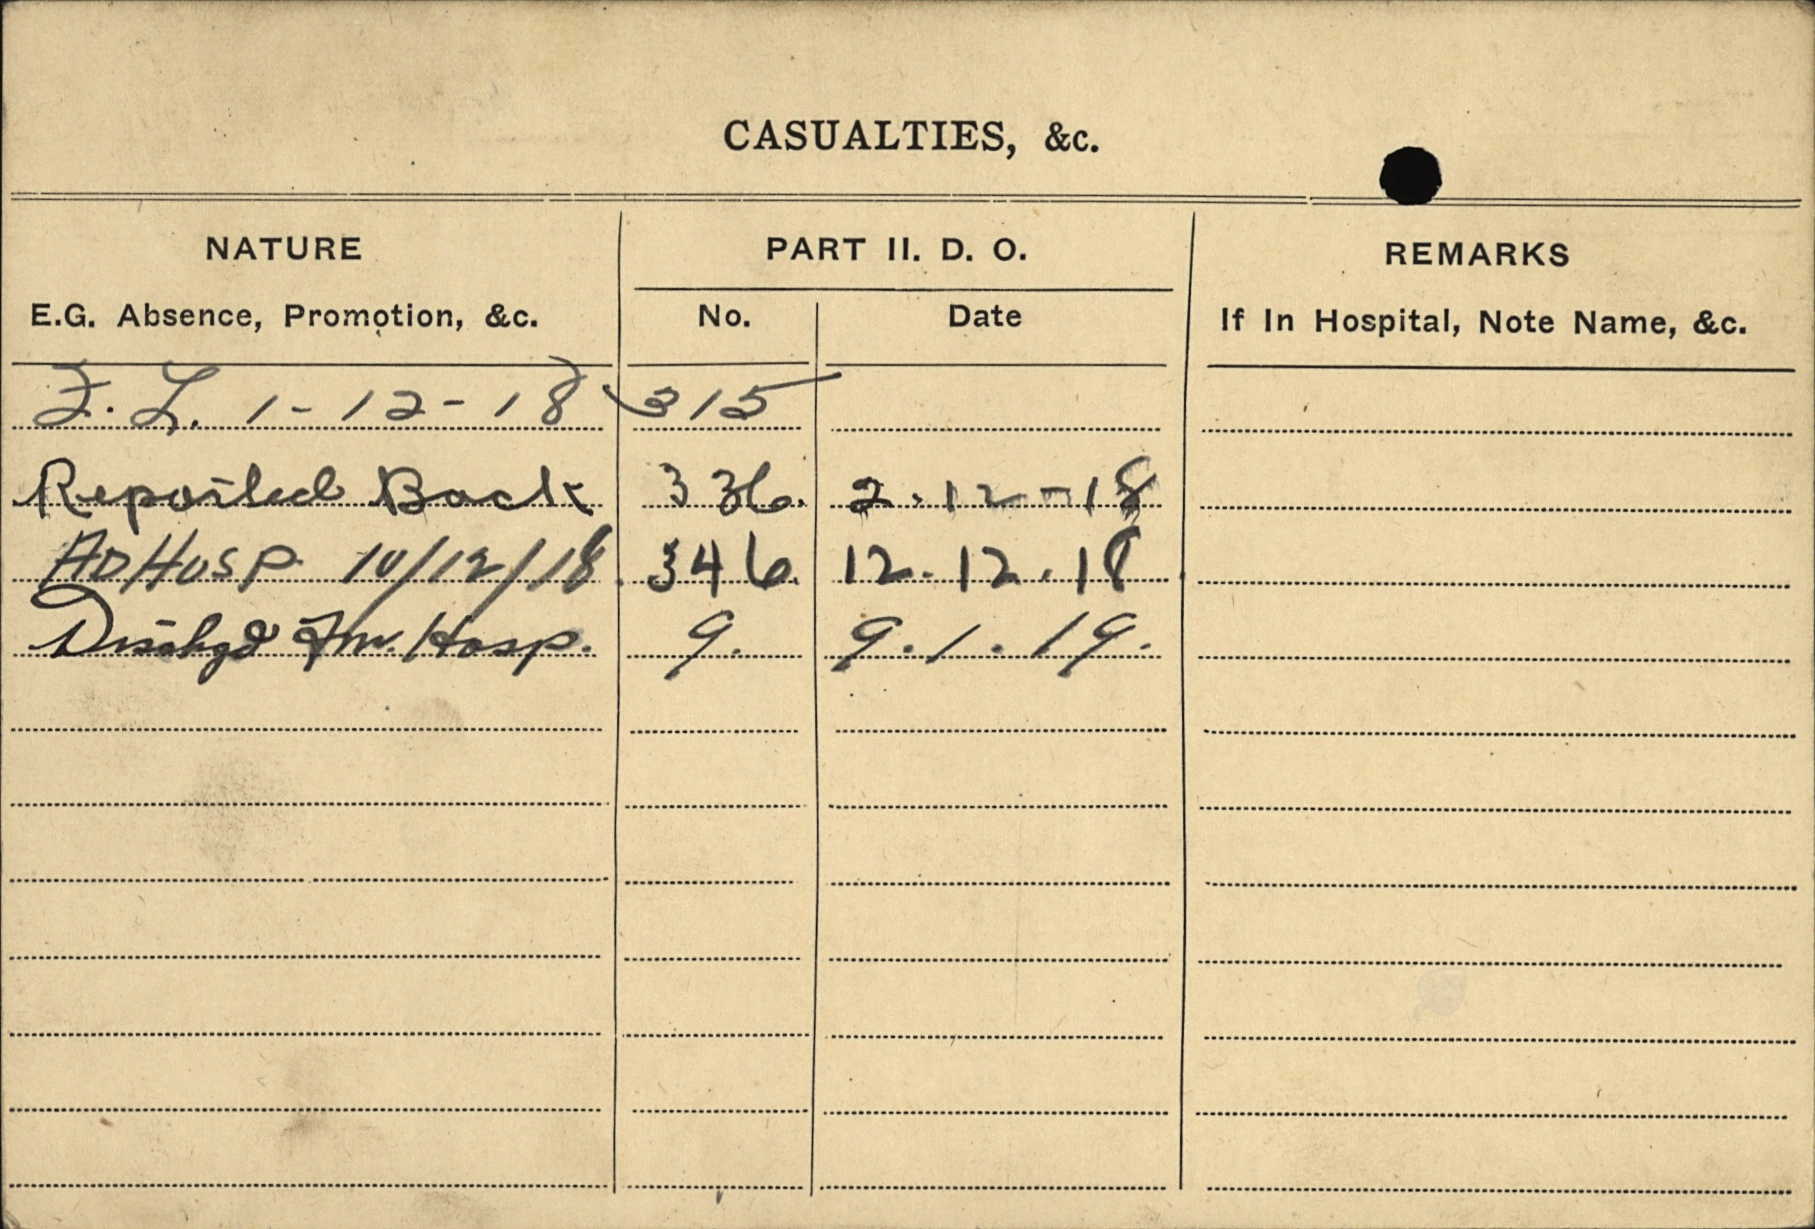 CASUALTIES, &c.
NATURE PART II. D. O. REMARKS
E.G. Absence, Promotion, &c. No. Date If In Hospital, Note Name, &c.
F. L. 1-12-18 315
Reported Back 336. 2.12-18
AD HOSP. 10/12/18. 346. 12.12.18
Dischgd Fm. Hosp. 9. 9.1.19.